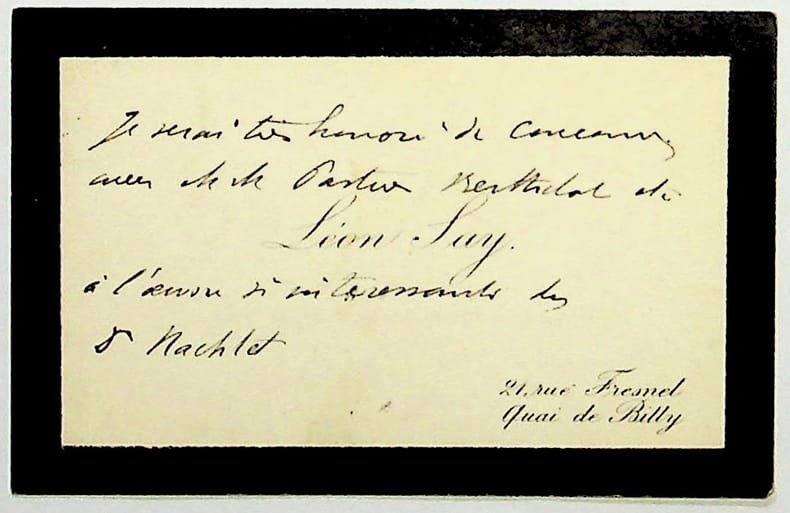 Je serai très honoré de concourir
avec MM Pasteur Berthelot etc
Léon Say.
à l'œuvre si intéressante du
Dr Nachtel
21, rue Fresnel
Quai de Billy